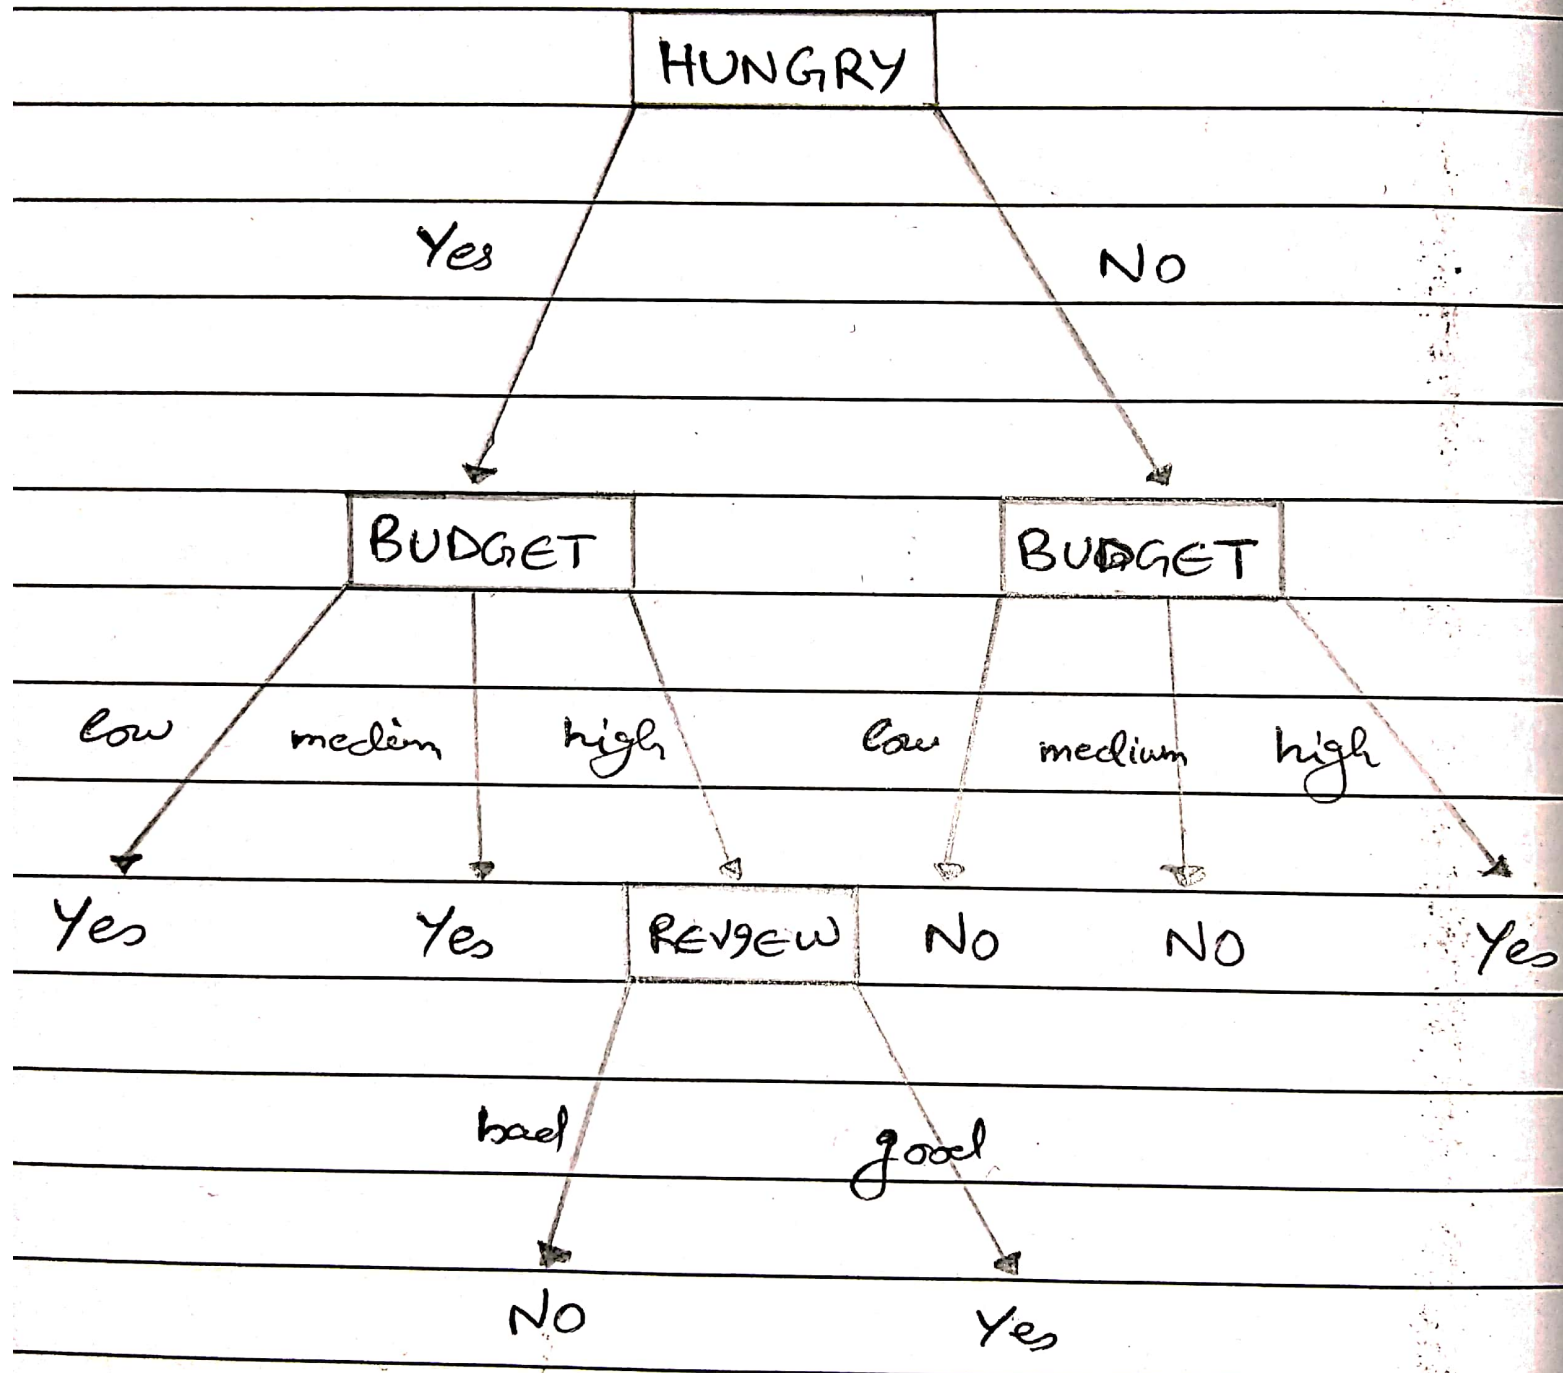 HUNGRY
Yes NO
BUDGET BUDGET
low medium high low medium high
Yes Yes REVIEW NO NO Yes
bad good
NO Yes